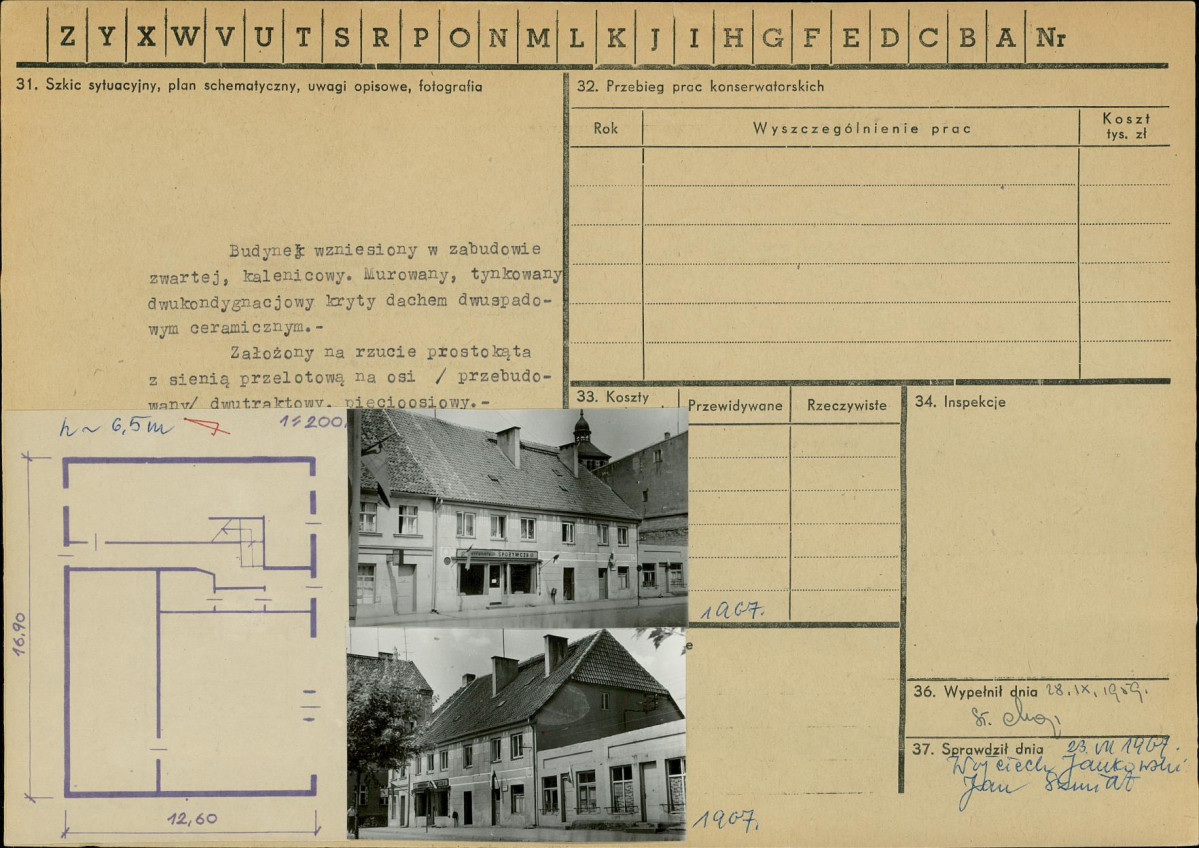 Z Y X W V U T S R P O N M L K J I H G F E D C B A Nr
31. Szkic sytuacyjny, plan schematyczny, uwagi opisowe, fotografia
Budynek wzniesiony w zabudowie
zwartej, kalenicowy. Murowany, tynkowany
dwukondygnacjowy kryty dachem dwuspado-
wym ceramicznym.-
Założony na rzucie prostokąta
z sienią przelotową na osi / przebudo-
wany/ dwutraktowy, pięcioosiowy.-
h ~ 6,5m
1:200,
16,90
12,60
SPOŻYWCZE
1967.
1967.
32. Przebieg prac konserwatorskich
Rok
Wyszczególnienie prac
Koszt
tys. zł
33. Koszty
Przewidywane
Rzeczywiste
e
34. Inspekcje
36. Wypełnił dnia 28.IX.1959.
St.
37. Sprawdził dnia 23.VII 1967.
Wojciech Jankowski
Jan Szmidt